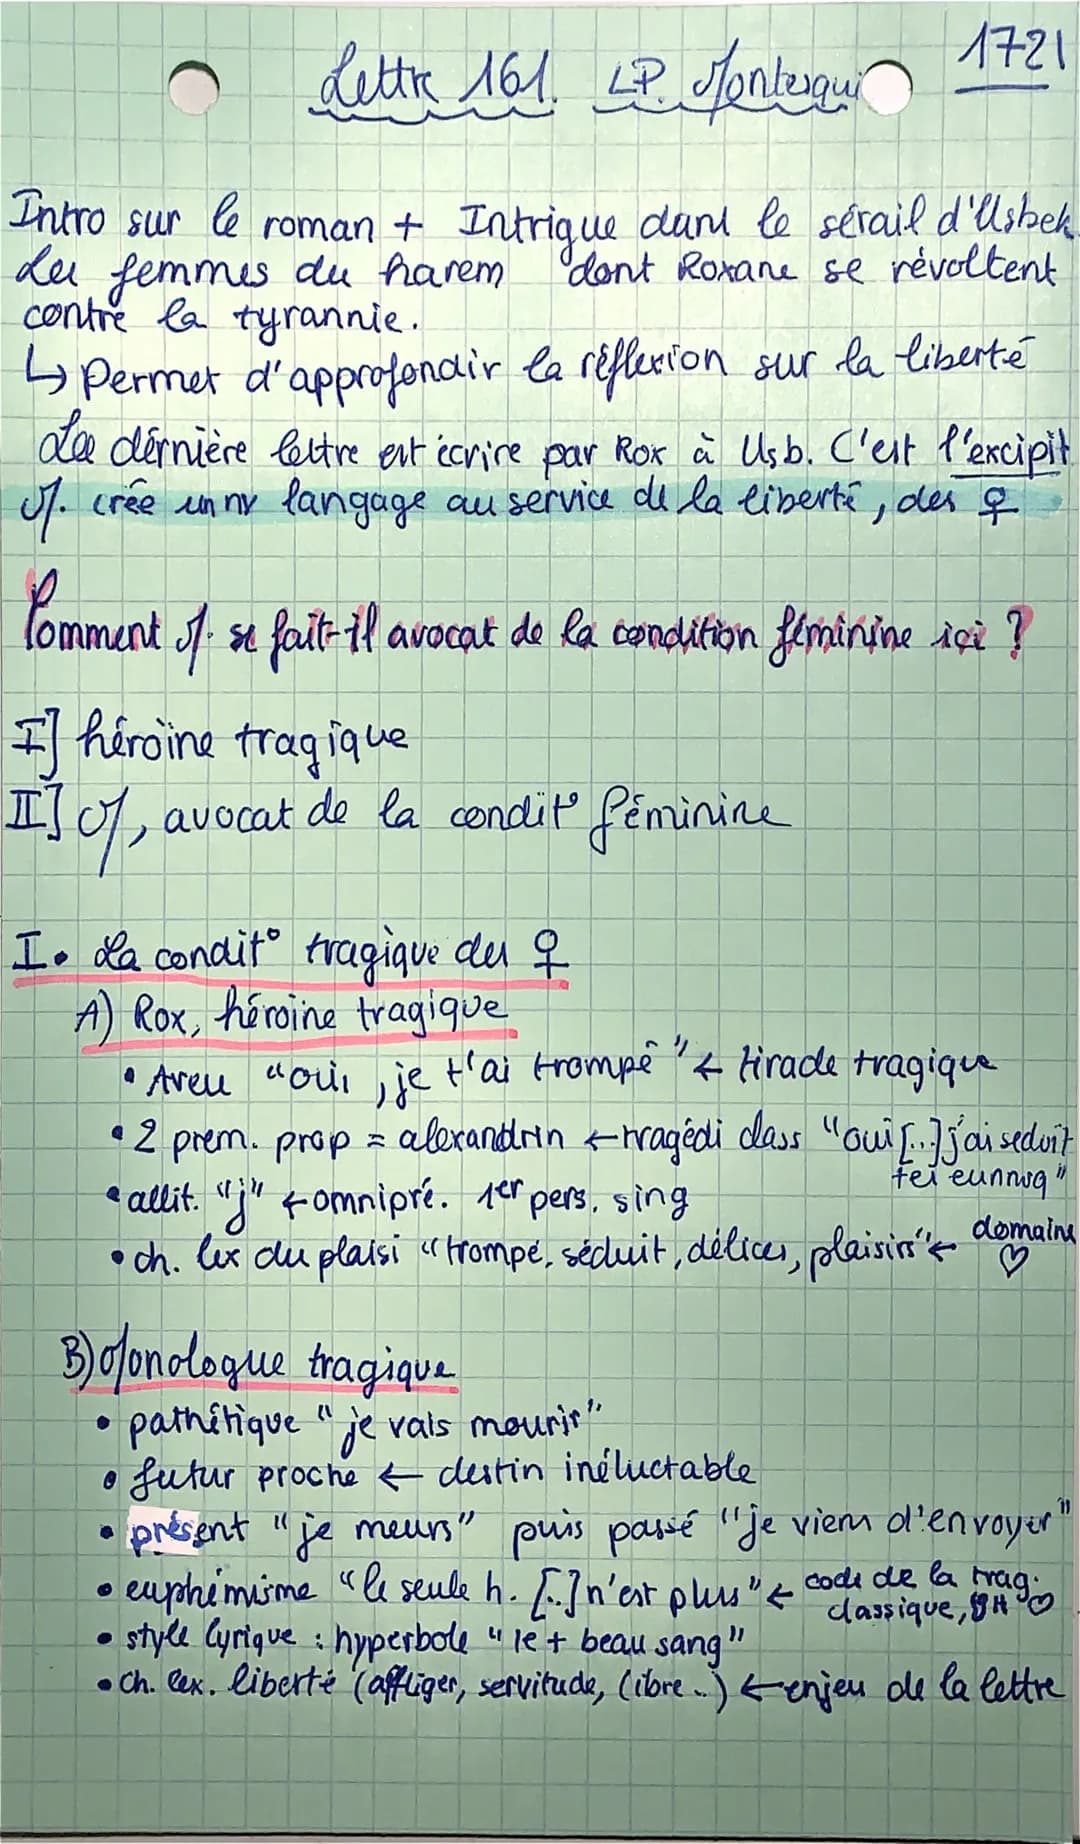 Lettre 161. LP. Montesqui
1721
Intro sur le roman + Intrigue dans le sérail d'Usbek.
Les femmes du harem dont Roxane se révoltent
contre la tyrannie.
↳ Permet d'approfondir la réflexion sur la liberté
La dérnière lettre est écrire par Rox à Usb. C'est l'excipit
M. crée un nv langage au service de la liberté, des ♀
Comment M. se fait-il avocat de la condition féminine ici ?
I] héroïne tragique
II] M, avocat de la condit° féminine
I. La condit° tragique des ♀
A) Rox, héroïne tragique
• Aveu "oui, je t'ai trompé" ← tirade tragique
• 2 prem. prop = alexandrin ← tragédi class "oui [...] j'ai seduit
tes eunnuq"
• allit. "j" ← omnipré. 1er pers. sing
• ch. lex du plaisi "trompé, séduit, délices, plaisirs" ← domaine
♡
B) Monologue tragique
• pathétique "je vais mourir"
• futur proche ← destin inéluctable
• présent "je meurs" puis passé "je viens d'envoyer"
• euphémisme "le seule h. [..] n'est plus" ← code de la trag.
classique, gH ♡
• style lyrique : hyperbole "le + beau sang"
• Ch. lex. liberté (affliger, servitude, libre ..) ← enjeu de la lettre